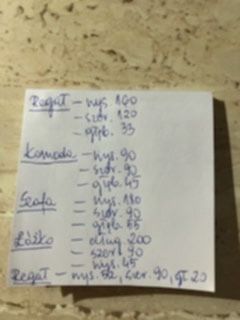 Regał - wys. 160
- szer. 120
- głęb. 33
Komoda - wys. 90
- szer. 90
- głęb. 45
Szafa - wys. 180
- szer. 90
- głęb. 55
Łóżko - dług. 200
- szer. 90
- wys. 45
Regał - wys. 52, szer. 90, gł 20